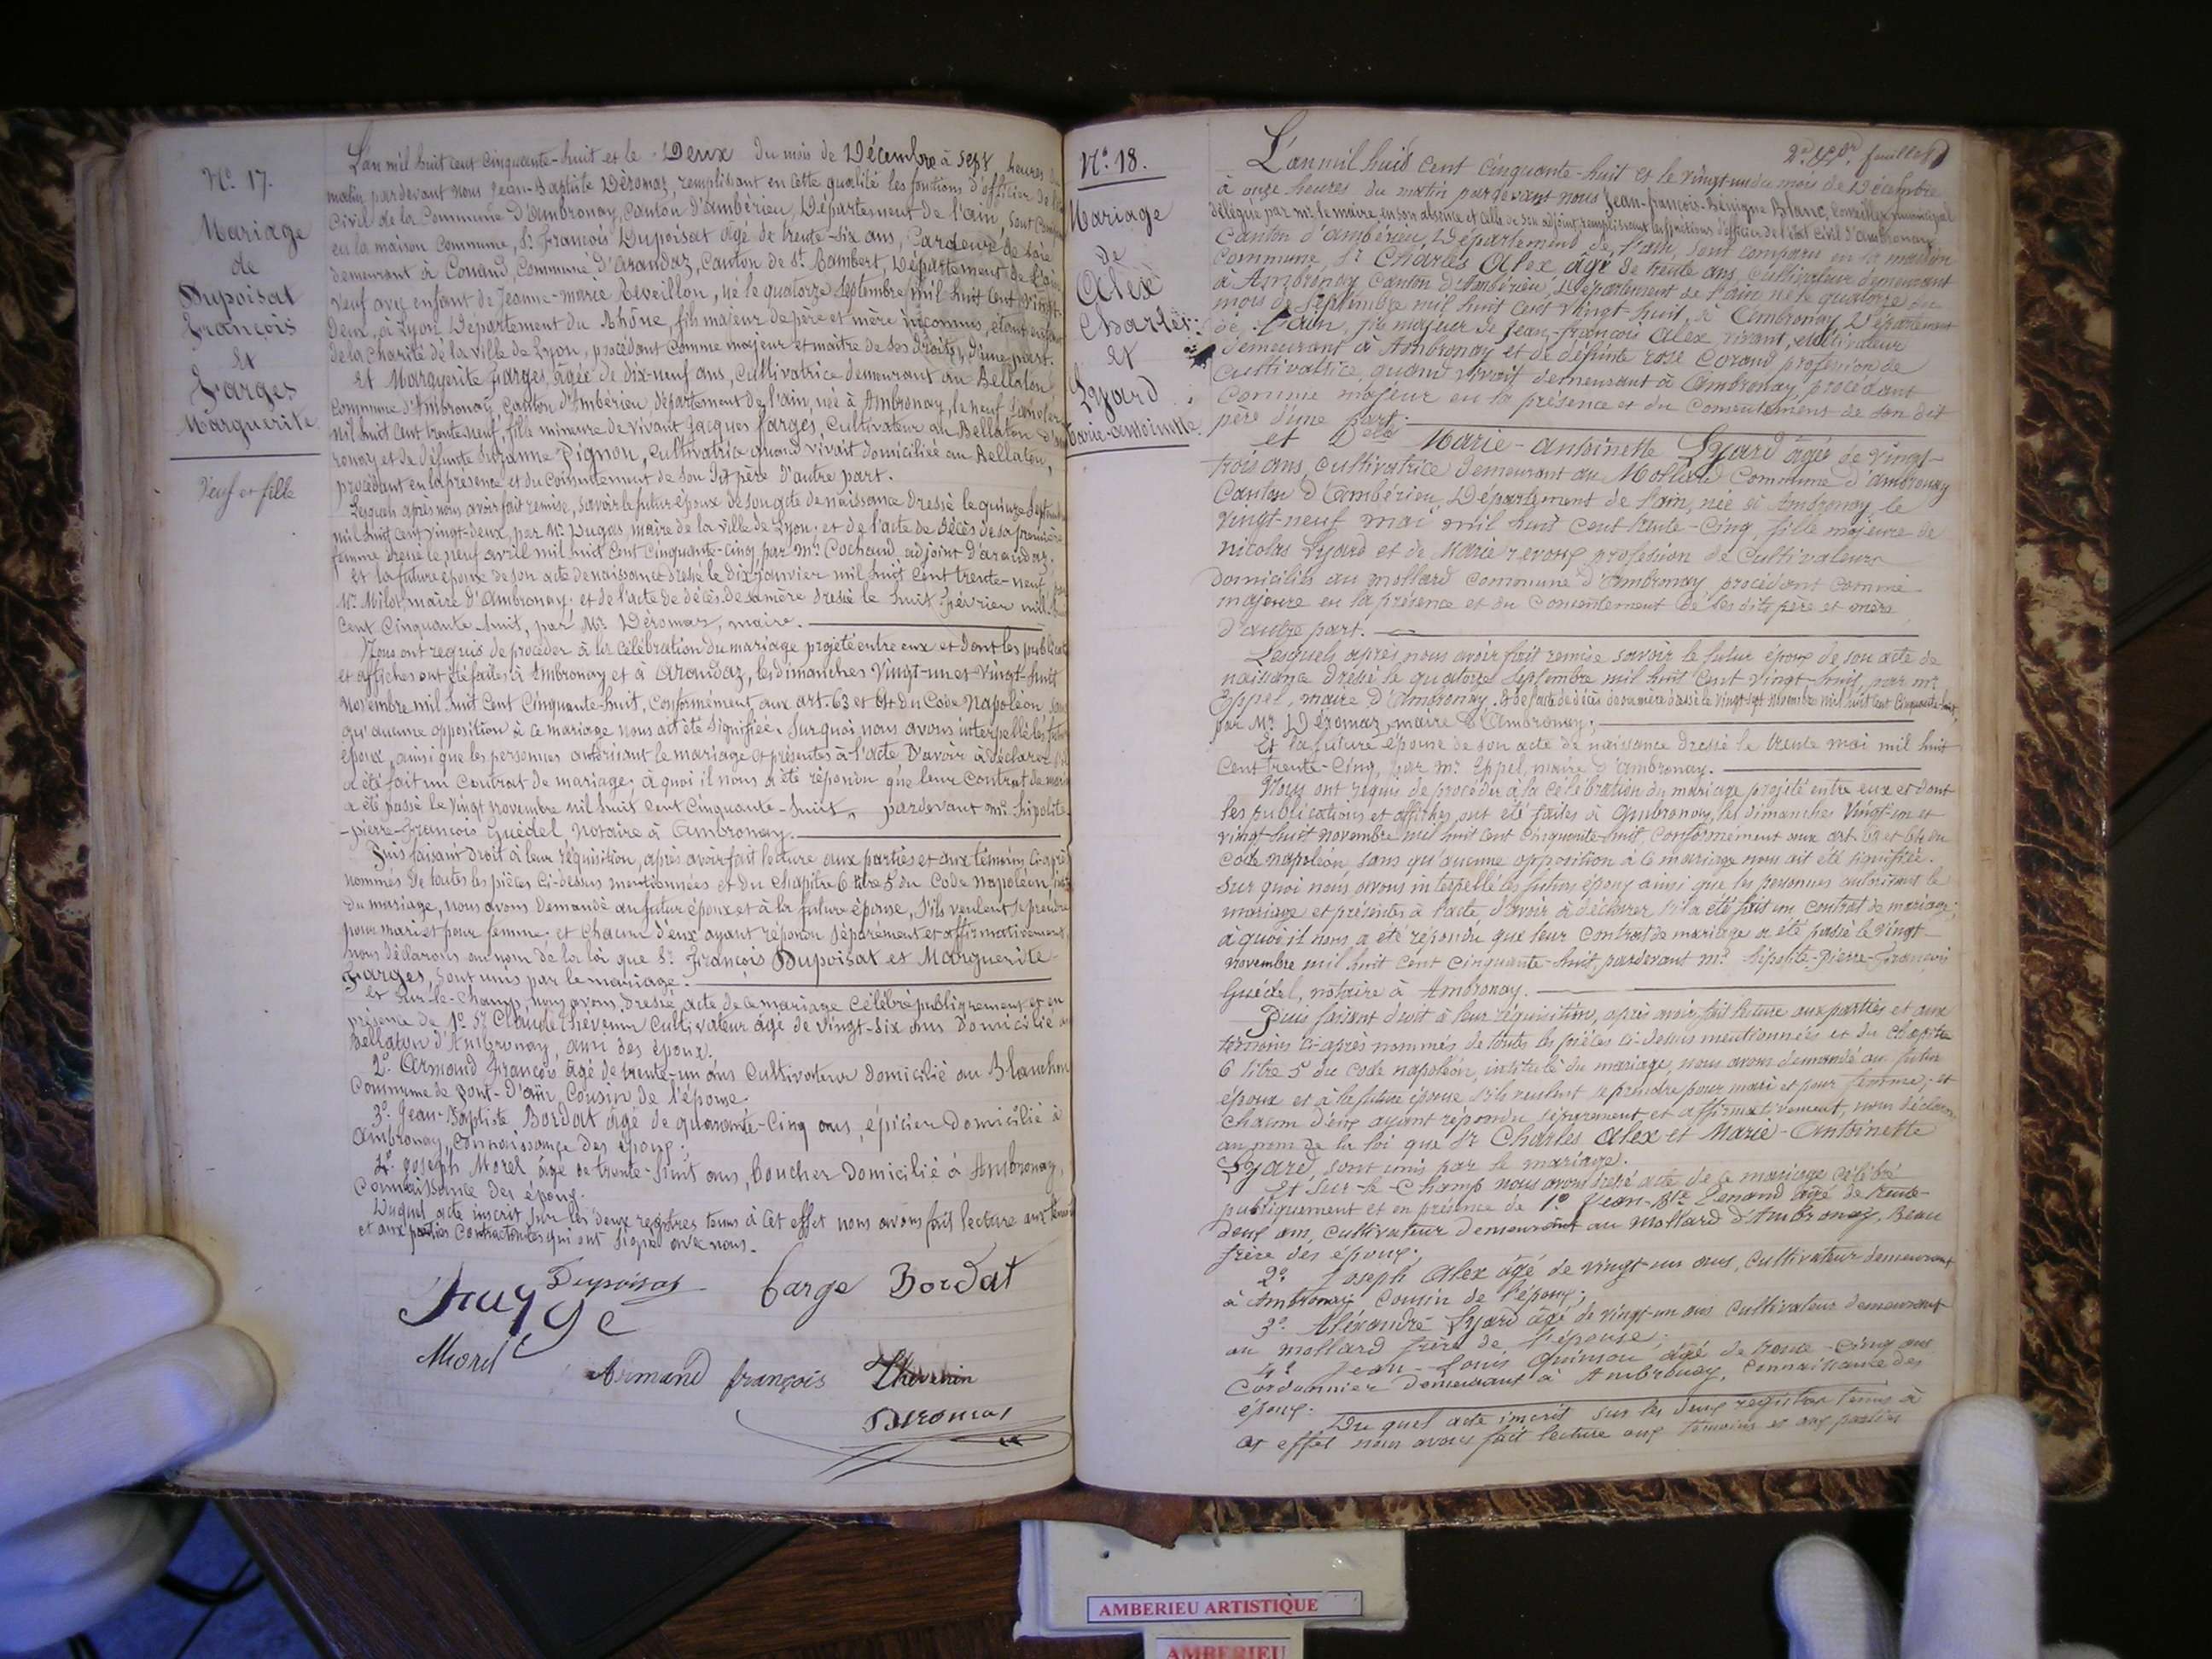 N.º 17.
Mariage
de
Dupoisat
François
Et
Farges
Marguerite
Veuf et fille
L'an mil huit cent cinquante-huit et le Deux du mois de Décembre à sept heures du
matin pardevant nous Jean-Baptiste Déromaz, remplissant en cette qualité les fonctions d'officier de l'état
Civil de la Commune d'Ambronay, Canton d'ambérieu, Département de l'ain, sont comparu
en la maison commune, Sr. François Dupoisat âgé de trente-six ans, Cardeur de soie
demeurant à Conand, Commune d'arandaz, Canton de St. Rambert, Département de l'ain
veuf avec enfant de Jeanne-marie Reveillon, né le quatorze Septembre mil huit cent vingt-
deux, à Lyon Département du Rhône, fils majeur de père et mère inconnus, étant enfant
de la Charité de la ville de Lyon, procédant comme majeur et maître de ses droits, d'une part.
Et Marguerite Farges, âgée de dix-neuf ans, cultivatrice demeurant au Bellaton
commune d'Ambronay, Canton d'Ambérieu, département de l'ain, née à Ambronay, le neuf Janvier
mil huit cent trente-neuf, fille mineure de vivant Jacques farges, Cultivateur au Bellaton d'Amb
ronay et de défunte Suzanne Pignon, cultivatrice quand vivait domiciliée au Bellaton,
procédant en la présence et du consentement de son dit père d'autre part.
Lesquels après nous avoir fait remise, savoir le futur époux de son acte de naissance dressé le quinze Septembre
mil huit cent vingt-deux, par Mr. Dugas, maire de la ville de Lyon; et de l'acte de décès de sa première
femme dressé le neuf avril mil huit cent cinquante-cinq par mr. Cochaud, adjoint d'arandaz.
Et la future épouse de son acte de naissance dressé le dix janvier mil huit cent trente-neuf, par
Mr. Milor, maire d'Ambronay; et de l'acte de décès de sa mère dressé le huit février mil huit
cent cinquante-huit, par Mr. Déromaz, maire.
Nous ont requis de procéder à la célébration du mariage projeté entre eux et dont les publications
et affiches ont été faites à Ambronay et à Arandaz, les dimanches vingt-un et vingt-huit
novembre mil huit cent cinquante-huit, conformément aux art. 63 et 64 du Code Napoléon, sans
qu'aucune opposition à ce mariage nous ait été signifiée. Sur quoi nous avons interpellé les futurs
époux, ainsi que les personnes autorisant le mariage et présentes à l'acte D'avoir à déclarer s'il
a été fait un contrat de mariage; à quoi il nous a été répondu que leur contrat de mariage
a été passé le vingt novembre mil huit cent cinquante-huit, pardevant mr. hipolite-
-pierre-François Guédel notaire à Ambronay.
Puis faisant droit à leur réquisition, après avoir fait lecture aux parties et aux témoins ci-après
nommés de toutes les pièces ci-dessus mentionnées et du chapitre 6 titre 5 du Code napoléon,
du mariage, nous avons demandé au futur époux et à la future épouse, s'ils veulent se prendre
pour mari et pour femme; et chacun d'eux ayant répondu séparément et affirmativement,
nous déclarons au nom de la loi que Sr. François Dupoisat et Marguerite
Farges, sont unis par le mariage.
Et sur-le-champ, nous avons dressé acte de ce mariage célébré publiquement et en
présence de 1º. Sr. Claude Thévenin cultivateur âgé de vingt-six ans domicilié au
Bellaton d'Ambronay, ami des époux.
2º. Armand François âgé de trente-un ans cultivateur domicilié au Blanchon
Commune de Pont-D'ain, cousin de l'épouse.
3º. Jean-Baptiste Bordat âgé de quarante-cinq ans, épicier domicilié à
Ambronay, connaissance des époux;
4º. Joseph Morel âgé de trente-huit ans, boucher domicilié à Ambronay,
connaissance des époux.
Duquel acte inscrit sur les deux registres tenus à cet effet nous avons fait lecture aux témoins
et aux parties contractantes qui ont signé avec nous.
Dupoisat farge Bordat
Morel Armand françois Thevenin
Déromaz
N.º 18.
Mariage
de
Alex
Charles
Et
Lyard
Marie-antoinette.
feuillet
L'an mil huit cent cinquante-huit et le vingt-un du mois de Décembre
à onze heures du matin pardevant nous Jean-françois-Bénigne Blanc, conseiller municipal
délégué par mr. le maire, en son absence et celle de son adjoint, remplissant les fonctions d'officier de l'état civil d'Ambronay
Canton d'ambérieu, Département de l'ain, sont comparu en la maison
commune, Sr. Charles Alex, âgé de trente ans, cultivateur demeurant
à Ambronay Canton d'Ambérieu, Département de l'ain né le quatorze du
mois de Septembre mil huit cent vingt-huit, à Ambronay Département
de l'ain, fils majeur de Jean-françois Alex, vivant, cultivateur
demeurant à Ambronay et de défunte rose Corand profession de
cultivatrice, quand vivait demeurant à Ambronay, procédant
comme majeur en la présence et du consentement de son dit
père d'une part.
et Delle Marie-Antoinette Lyard âgée de vingt-
trois ans, cultivatrice demeurant au Mollard Commune d'ambronay
Canton d'Ambérieu, Département de l'ain, née à Ambronay le
vingt-neuf mai mil huit cent trente-cinq, fille majeure de
nicolas Lyard et de Marie revoux profession de cultivateurs
domiciliés au mollard commune d'Ambronay procédant comme
majeure en la présence et du consentement de ses dits père et mère
d'autre part.
Lesquels après nous avoir fait remise savoir le futur époux de son acte de
naissance dressé le quatorze Septembre mil huit cent vingt-huit, par mr.
Eppel, maire d'Ambronay. et de l'acte de décès de sa mère dressé le vingt-sept novembre mil huit cent cinquante-huit,
par Mr. Déromaz, maire d'Ambronay;
Et la future épouse de son acte de naissance dressé le trente mai mil huit
cent trente-cinq, par mr. Eppel, maire d'ambronay.
Nous ont requis de procéder à la célébration du mariage projeté entre eux et dont
les publications et affiches ont été faites à Ambronay, les dimanches vingt-un et
vingt-huit novembre mil huit cent cinquante-huit, conformément aux art. 63 et 64 du
Code napoléon, sans qu'aucune opposition à ce mariage nous ait été signifiée.
Sur quoi nous avons interpellé les futurs époux ainsi que les personnes autorisant le
mariage et présentes à l'acte, d'avoir à déclarer s'il a été fait un contrat de mariage;
à quoi il nous a été répondu que leur contrat de mariage a été passé le vingt
novembre mil huit cent cinquante-huit, pardevant mr. hipolite-Pierre-François
Guédel, notaire à Ambronay.
Puis faisant droit à leur réquisition, après avoir fait lecture aux parties et aux
témoins ci-après nommés de toutes les pièces ci-dessus mentionnées et du chapitre
6 titre 5 du Code napoléon, intitulé du mariage, nous avons demandé au futur
époux et à la future épouse s'ils veulent se prendre pour mari et pour femme; et
chacun d'eux ayant répondu séparément et affirmativement, nous déclarons
au nom de la loi que Sr. Charles Alex et Marie-Antoinette
Lyard, sont unis par le mariage.
Et sur-le-champ nous avons dressé acte de ce mariage célébré
publiquement et en présence de 1º Jean-Bte. Lenand âgé de trente-
deux ans, cultivateur demeurant au Mollard d'Ambronay, Beau
frère des époux;
2º. Joseph Alex âgé de vingt-un ans, cultivateur demeurant
à Ambronay cousin de l'époux;
3º. Alexandre Lyard âgé de vingt-un ans cultivateur demeurant
au mollard frère de l'épouse;
4º. Jean-Louis Quinson âgé de trente-cinq ans
cordonnier demeurant à Ambronay, connaissance des
époux.
Du quel acte inscrit sur les deux registres tenus à
cet effet nous avons fait lecture aux témoins et aux parties
AMBERIEU ARTISTIQUE
AMBERIEU